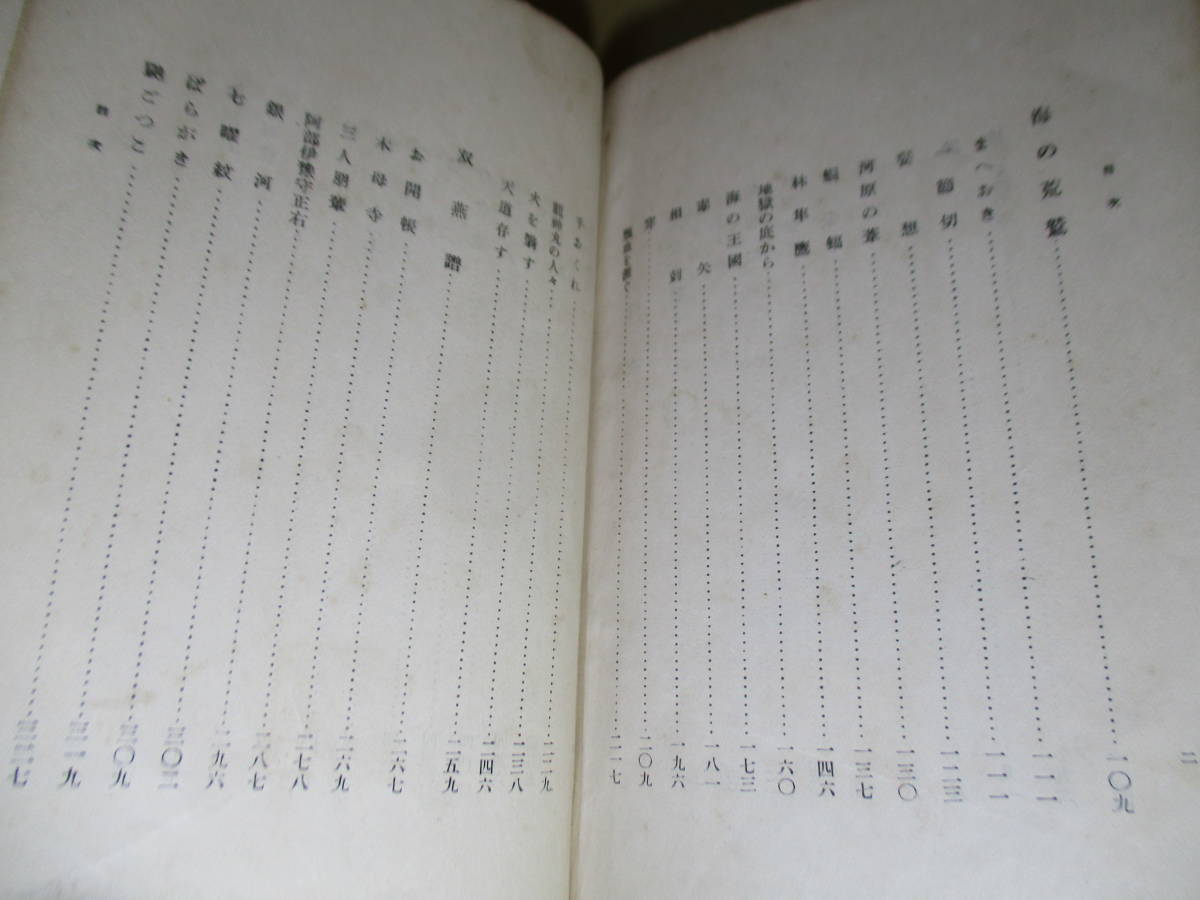 目次
二
海の荒鷲……一〇九
まへおき……一一一
節切……一一一
妄想……一二三
河原の葦……一三〇
蝙蝠……一三七
林隼鷹……一四六
地獄の底から……一六〇
海の王國……一七三
毒矢……一八一
……一九六
穽……二〇九
……二一七
手おくれ……二二九
の人々……二三八
火を翳す……二四六
天道存す……二五九
双燕譜……二六七
お開帳……二六九
木母寺……二七八
三人朋輩……二八七
阿部伊豫守正右……二九六
銀河……三〇三
七曜紋……三〇九
ばらがき……三一九
ごつこ……三三七
目次